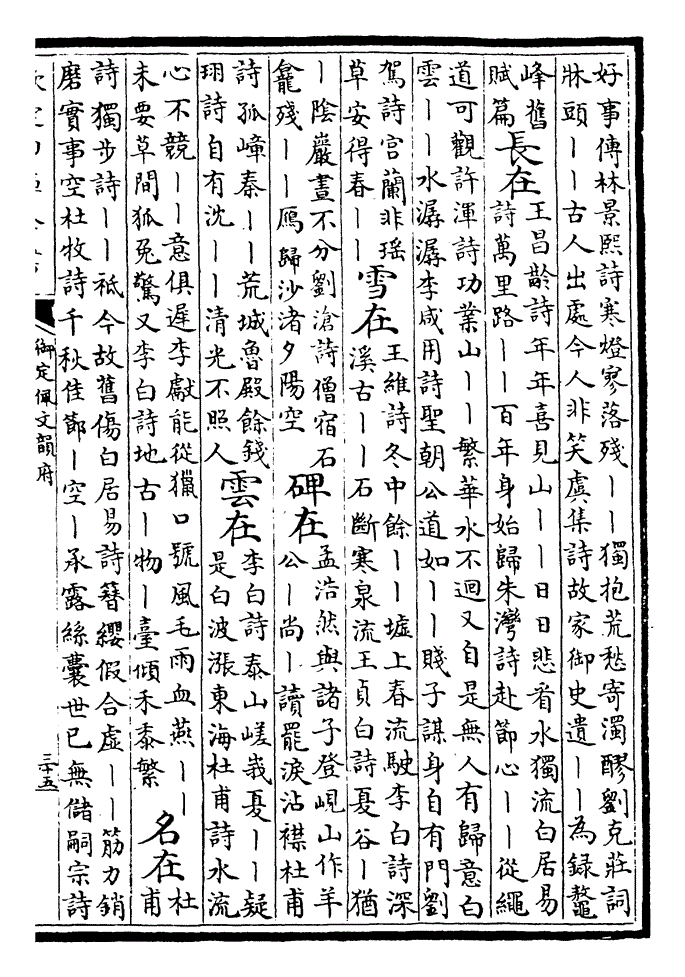 好事傳林景熙詩寒燈寥落殘丨丨獨抱荒愁寄濁醪劉克莊詞
牀頭丨丨古人出處今人非笑虞集詩故家御史遺丨丨為録鼇
峰舊
賦篇
長在
王昌齡詩年年喜見山丨丨日日悲看水獨流白居易
詩萬里路丨丨百年身始歸朱灣詩赴節心丨丨從繩
道可觀許渾詩功業山丨丨繁華水不迴又自是無人有歸意白
雲丨丨水潺潺李咸用詩聖朝公道如丨丨賤子謀身自有門劉
駕詩宫蘭非瑶
草安得春丨丨
雪在
王維詩冬中餘丨丨墟上春流駛李白詩深
溪古丨丨石斷寒泉流王貞白詩夏谷丨猶
丨陰巖晝不分劉滄詩僧宿石
龕殘丨丨鴈歸沙渚夕陽空
碑在
孟浩然與諸子登峴山作羊
公丨尚丨讀罷淚沾襟杜甫
詩孤嶂秦丨丨荒城魯殿餘錢
珝詩自有沈丨丨清光不照人
雲在
李白詩泰山嵯峩夏丨丨疑
是白波漲東海杜甫詩水流
心不競丨丨意俱遲李獻能從獵口號風毛雨血燕丨丨
未要草間狐兔驚又李白詩地古丨物丨臺傾禾黍繁
名在
杜
甫
詩獨步詩丨丨祗今故舊傷白居易詩簪纓假合虛丨丨筋力銷
磨實事空杜牧詩千秋佳節丨空丨承露絲囊世已無儲嗣宗詩
御定佩文韻府
三十五